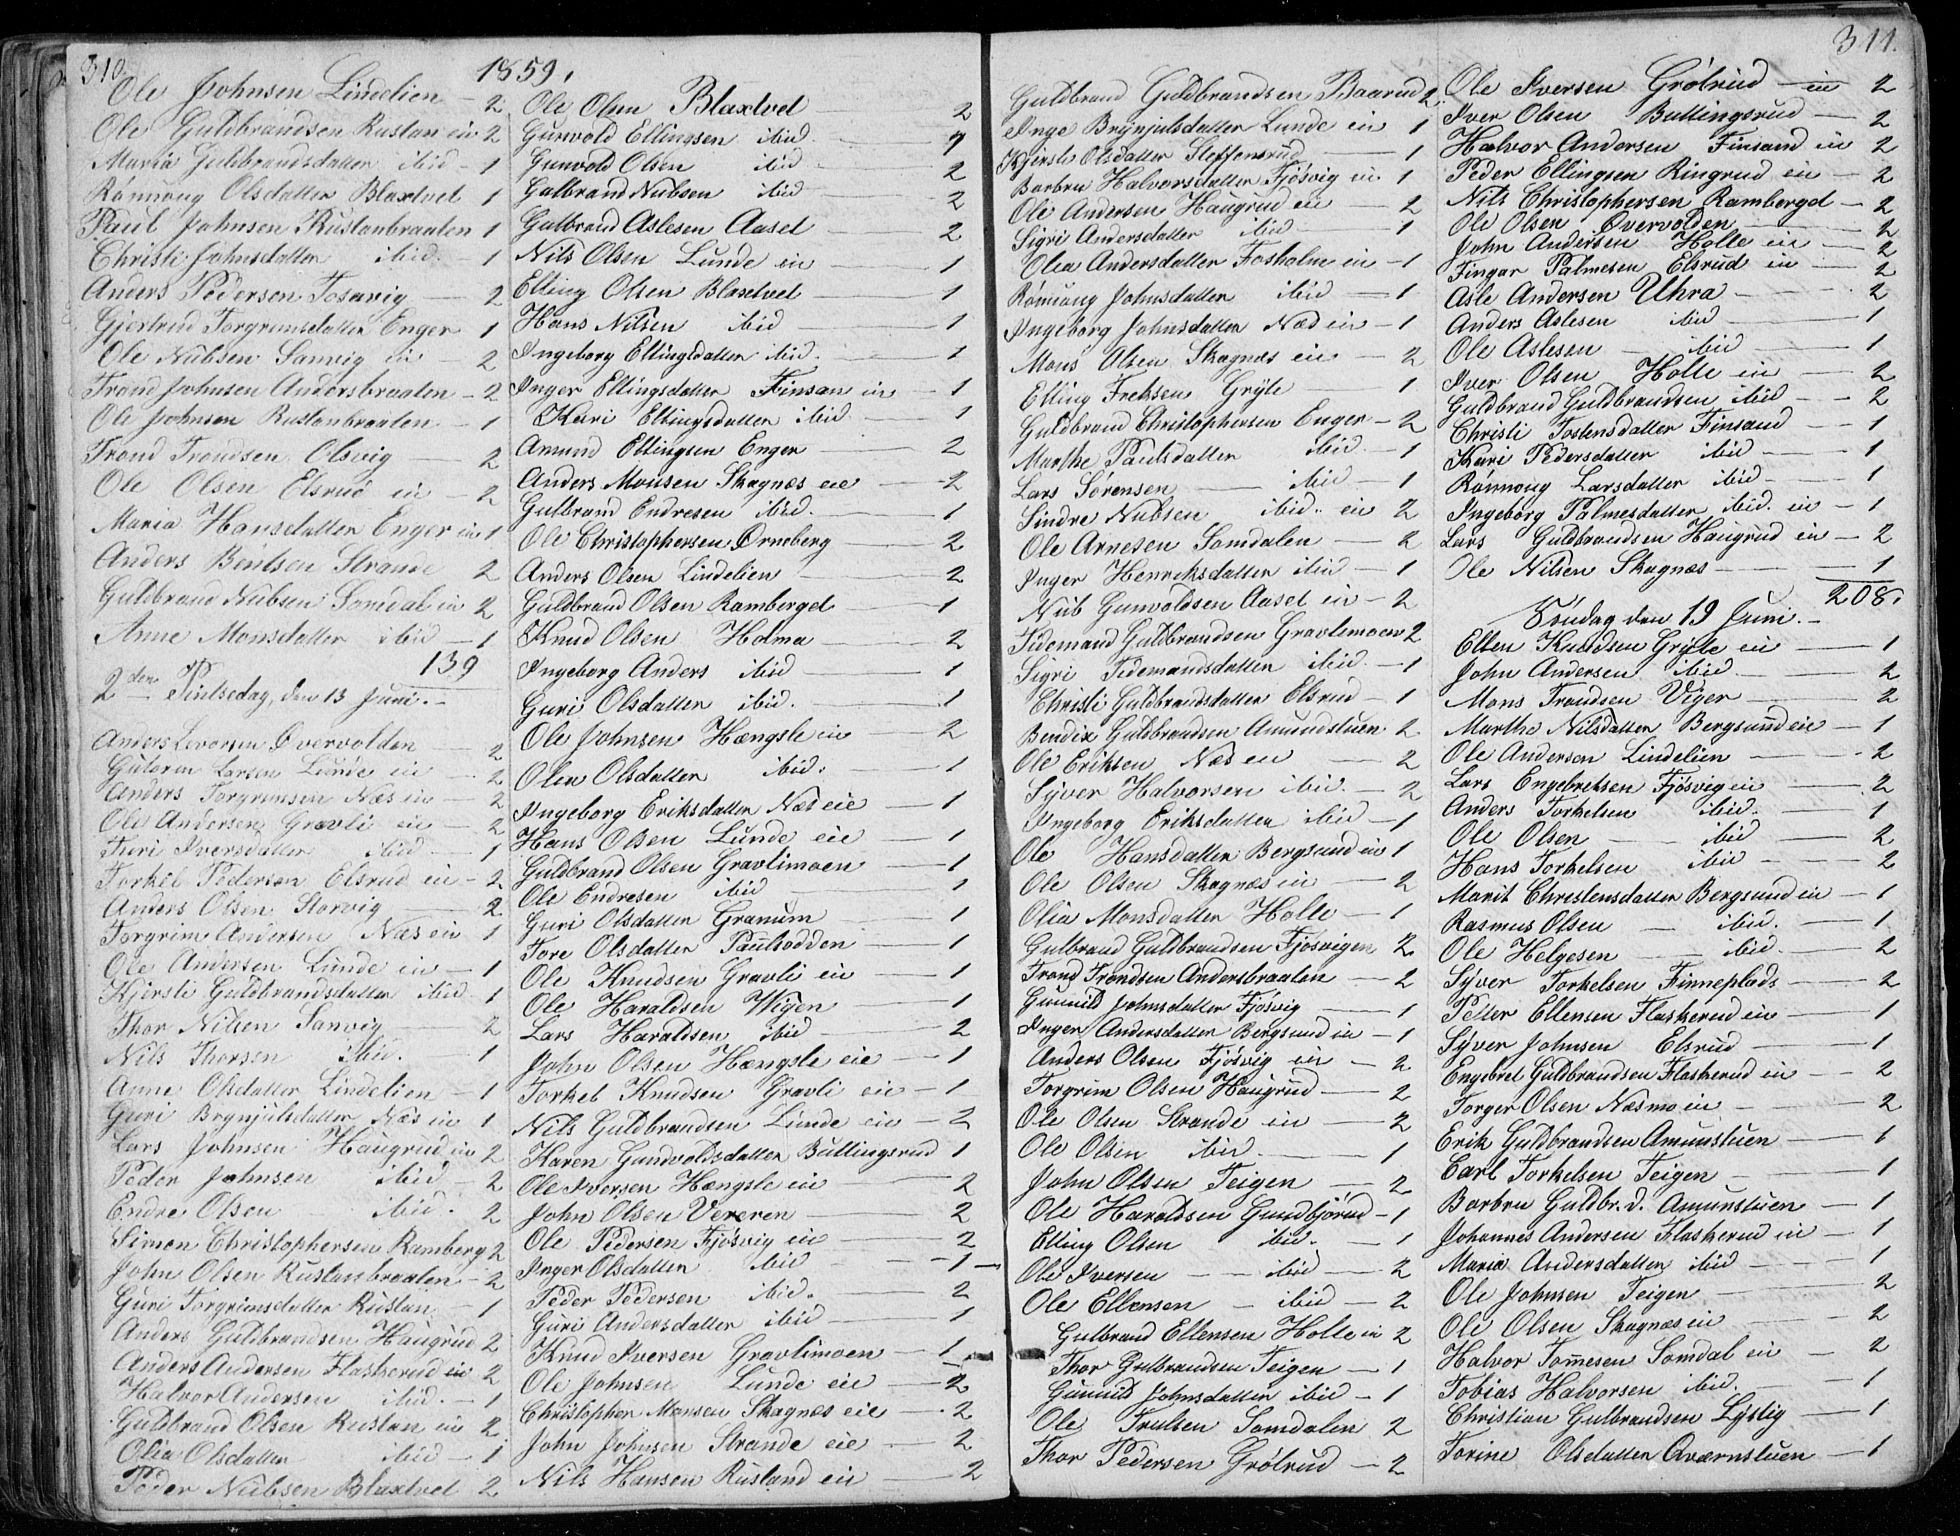 310.
1859.
Ole Johnsen Lindelien — 2
Ole Guldbrandsen Rustan eie 2
Maria Guldbrandsdatter ibid — 1
Rönnoug Olsdatter Blaxtvet 1
Paul Johnsen Rustanbraaten 1
Christi Johnsdatter ibid. — 1
Anders Pedersen Tosavig — 2
Gjertrud Torgrimsdatter Enger 1
Ole Nubsen Sanvig eie — 2
Trond Johnsen Andersbraaten — 2
Ole Johnsen Rustanbraaten — 1
Trond Trondsen Olsvig — 2
Ole Olsen Elsrud eie — 2
Maria Hansdatter Enger eie 1
Anders Bentsen Strande 2
Guldbrand Nubsen Somdal eie 2
Anne Monsdatter ibid — 1
139
2den Pintsedag, den 13 Juni. —
Anders Levorsen Övervolden — 2
Guttorm Larsen Lunde eie — 2
Anders Torgrimsen Næs eie — 2
Ole Andersen Gravli eie — 2
Turi Iversdatter ibid — 1
Torkel Pedersen Elsrud eie — 2
Anders Olsen Storvig — 2
Torgrim Andersen Næs eie 1
Ole Andersen Lunde eie — 1
Kjersti Guldbrandsdatter ibid 1
Thor Nilsen Sanvig — 2
Nils Thorsen ibid. — 1
Anne Olsdatter Lindelien — 1
Guri Brynjulsdatter Næs eie 1
Lars Johnsen Haugrud eie 2
Peder Johnsen ibid — 2
Endre Olsen ibid. 2
Simon Christophersen Ramberg 2
John Olsen Rustanbraaten — 2
Guri Torgrimsdatter Rustan — 1
Anders Guldbrandsen Haugrud 2
Anders Andersen Flaskerud eie 2
Halvor Andersen ibid. — 1
Guldbrand Olsen Rustan eie 2
Olia Olsdatter ibid — 1
Peder Nubsen Blaxtvet 2
Ole Olsen Blaxtvet 2
Gunvold Ellingsen ibid. — 1
Gunvold Olsen ibid — 2
Gulbrand Nubsen ibid — 2
Gulbrand Aslesen Aaset — 2
Nils Olsen Lunde eie — 1
Elling Olsen Blaxtvet — 1
Hans Nilsen ibid — 1
Ingeborg Ellingsdatter ibid. — 1
Inger Ellingsdatter Finsan eie — 1
Kari Ellingsdatter ibid — 1
Amund Ellingsen Enger — 2
Anders Monsen Skagnæs eie — 2
Gulbrand Endresen ibid. — 1
Ole Christophersen Örneberg — 2
Anders Olsen Lindelien — 2
Guldbrand Olsen Ramberget — 1
Knud Olsen Holma — 2
Ingeborg Anders ibid — 1
Guri Olsdatter ibid. — 1
Ole Johnsen Hængsle eie — 2
Olea Olsdatter ibid. — 1
Ingeborg Eriksdatter Næs eie — 1
Hans Olsen Lunde eie — 1
Guldbrand Olsen Gravlimoen — 1
Ole Endresen ibid — 1
Guri Olsdatter Granum — 1
Tore Olsdatter Paulsodden — 1
Ole Knudsen Gravli eie — 1
Ole Haraldsen Wigen — 1
Lars Haraldsen ibid — 2
John Olsen Hængsle eie — 1
Torkel Knudsen Gravli eie — 1
Nils Guldbrandsen Lunde eie — 2
Karen Gundvoldsdatter Bullingsrud 1
Ole Iversen Hængsle eie — 2
John Olsen Vereren — 2
Ole Pedersen Fjösvig eie — 2
Inger Olsdatter ibid — 1 —
Peder Pedersen ibid. — 2
Guri Andersdatter ibid — 1
Knud Iversen Gravlimoen — 1
Ole Johnsen Lunde eie — 2
Christopher Monsen Skagnæs eie — 2
John Johnsen Strande eie — 2
Nils Hansen Rustand eie — 2
311.
Guldbrand Guldbrandsen Baarud 2.
Inge Brynjulsdatter Lunde eie 1
Kjersti Olsdatter Steffensrud — 1
Barbru Halvorsdatter Fjösvig eie 1
Ole Andersen Haugrud eie — 2
Sigri Andersdatter ibid — 1
Olea Andersdatter Fosholm eie — 1
Rönnoug Johnsdatter ibid — 1
Ingeborg Johnsdatter Næs eie — 1
Mons Olsen Skagnæs eie 2
Elling Fretsen Gryte — 1
Guldbrand Christophersen Enger — 2
Marthe Paulsdatter ibid. — 1
Lars Sörensen — ibid — 1
Sindre Nubsen ibid. eie 2
Ole Arnesen Somdalen — 2
Inger Henriksdatter ibid — 1
Nub Gunvoldsen Aaset eie — 2
Tidemand Guldbrandsen Gravlimoen 2
Sigri Tidemandsdatter ibid. — 1
Christi Guldbrandsdatter Elsrud — 1
Bendix Guldbrandsen Amundstuen 2
Ole Eriksen Næs en — 2
Syver Halvorsen ibid. — 2
Ingeborg Eriksdatter ibid — 1
Ole Hansdatter Bergsund eie 1
Ole Olsen Skagnæs eie — 2
Olia Monsdatter Holte — 1
Gulbrand Guldbrandsen Fjösvigen 2
Trond Trondsen Andersbraaten — 2
Gunnild Johnsdatter Fjösvig — 1
Inger Andersdatter Bergsund eie — 1
Anders Olsen Fjösvig eie — 2
Torgrim Olsen Haugrud — 2
Ole Olsen Strande eie — 2
Ole Olsen ibid. — 1
John Olsen Teigen — 2
Ole Haraldsen Gundbjörud — 1
Elling Olsen ibid. — 1
Ole Iversen — ibid — 2
Ole Ellensen — ibid — 2
Gulbrand Ellensen Holte eie 2
Thor Gulbrandsen Teigen — 1
Gunnild Johnsdatter ibid — 1
Ole Trulsen Somdalen 2
Thor Pedersen Grötrud — 2
Ole Iversen Grötrud — eie — 2
Iver Olsen Bullingsrud — 2
Halvor Andersen Finsand eie 2
Peder Ellingsen Ringrud eie — 2
Nils Christophersen Ramberget — 2
Ole Olsen Övervolden — 2
John Andersen Holte eie — 2
Fingar Palmesen Elsrud eie — 2
Asle Andersen Uhra — 2
Anders Aslesen ibid — 1
Ole Aslesen — ibid — 1
Iver Olsen Holte eie — 2
Guldbrand Guldbrandsen ibid — 2
Christi Tostensdatter Finsand — 1
Kari Pedersdatter ibid — 1
Rönnoug Larsdatter ibid — 1
Ingeborg Palmesdatter ibid. eie — 1
Lars Guldbrandsen Haugrud eie — 2
Ole Nilsen Skagnæs — 1
208.
Söndag den 19 Juni. —
Ellen Knudsen Gryte eie — 1
John Andersen ibid. — 2
Mons Trondsen Viger — 2
Marthe Nilsdatter Bergsund eie — 1
Ole Andersen Lindelien — 2
Lars Engebretsen Fjösvig eie — 2
Anders Torkelsen ibid. — 1
Ole Olsen — ibid — 2
Hans Torkelsen ibid — 2
Marit Christensdatter Bergsund eie — 1
Rasmus Olsen — ibid. — 1
Ole Helgesen — ibid. — 2
Syver Torkelsen Finneplads — 2
Peter Ellensen Flaskerud eie — 1
Syver Johnsen Elsrud — 1
Engebret Guldbrandsen Flaskerud eie — 2
Torger Olsen Næsmo eie — 2
Erik Guldbrandsen Amunstuen — 1
Carl Torkelsen Teigen — 1
Barbru Guldbr.d. Amunstuen — 1
Johannes Andersen Flaskerud eie — 1
Maria Andersdatter ibid — 1
Ole Johnsen Teigen — 2
Ole Olsen Skagnæs eie — 2
Halvor Tommesen Somdal eie — 2
Tobias Halvorsen ibid. — 1
Christian Gulbrandsen Lyslig — 1
Torine Olsdatter Qværnstuen — 1